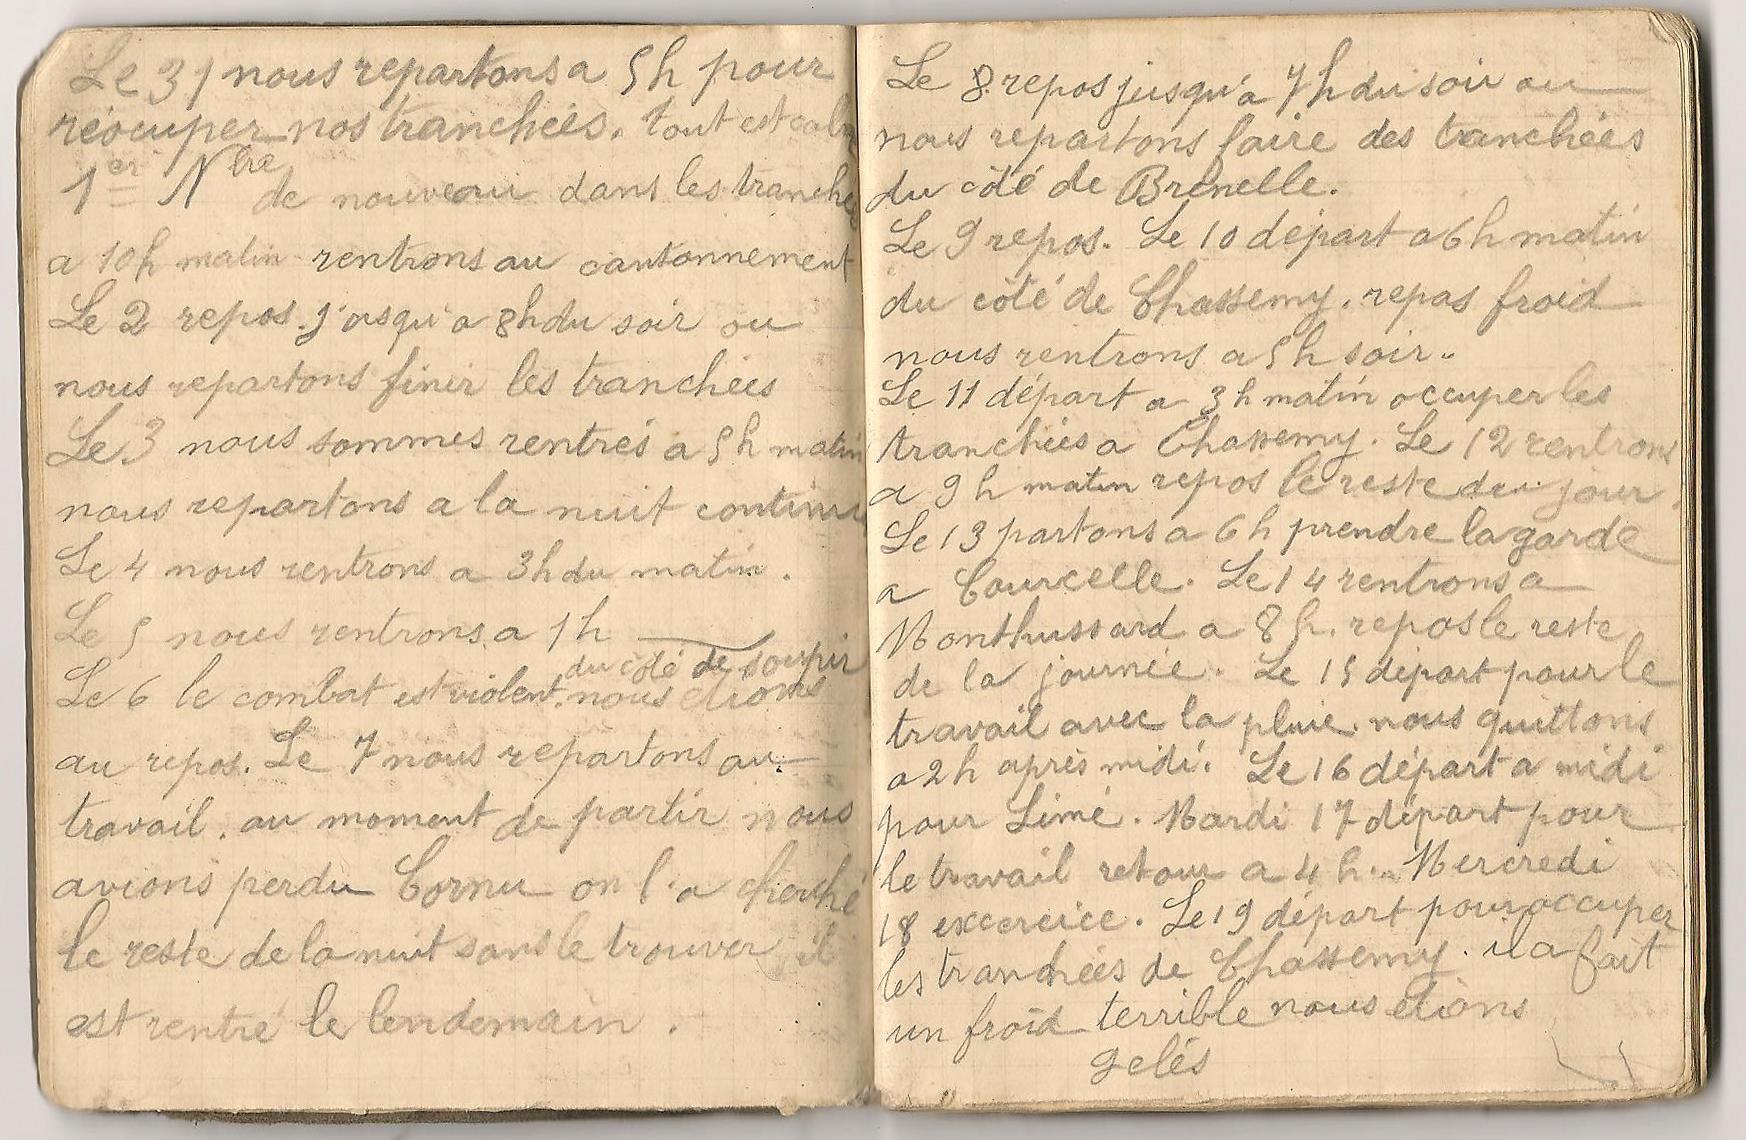 Le 31 nous repartons a 5h pour
réocuper nos tranchées. tout est calm
1er Nbre de nouveau dans les tranchées
a 10h matin rentrons au cantonnement
Le 2 repos. jusqu'a 8h du soir ou
nous repartons finir les tranchées
Le 3 nous sommes rentrés a 5h matin
nous repartons a la nuit continu
Le 4 nous rentrons a 3h du matin.
Le 5 nous rentrons a 1h
du côté de soupir
Le 6 le combat est violent. nous etions
au repos. Le 7 nous repartons au
travail. au moment de partir nous
avions perdu Cornu on l'a cherché
le reste de la nuit sans le trouver il
est rentré le lendemain.
Le 8 repos jusqu'a 7h du soir ou
nous repartons faire des tranchées
du côté de Brenelle.
Le 9 repos. Le 10 départ a 6h matin
du côté de Chassemy. repas froid
nous rentrons a 5h soir.
Le 11 départ a 3h matin occuper les
tranchées a Chassemy. Le 12 rentrons
a 9h matin repos le reste du jour.
Le 13 partons a 6h prendre la garde
a Courcelle. Le 14 rentrons a
Monthussard a 8h. repos le reste
de la journée. Le 15 départ pour le
travail avec la pluie. nous quittons
a 2h après midi. Le 16 départ a midi
pour Limé. Mardi 17 départ pour
le travail retour a 4h. Mercredi
18 excercice. Le 19 départ pour occuper
les tranchées de Chassemy. il a fait
un froid terrible nous etions
gelés